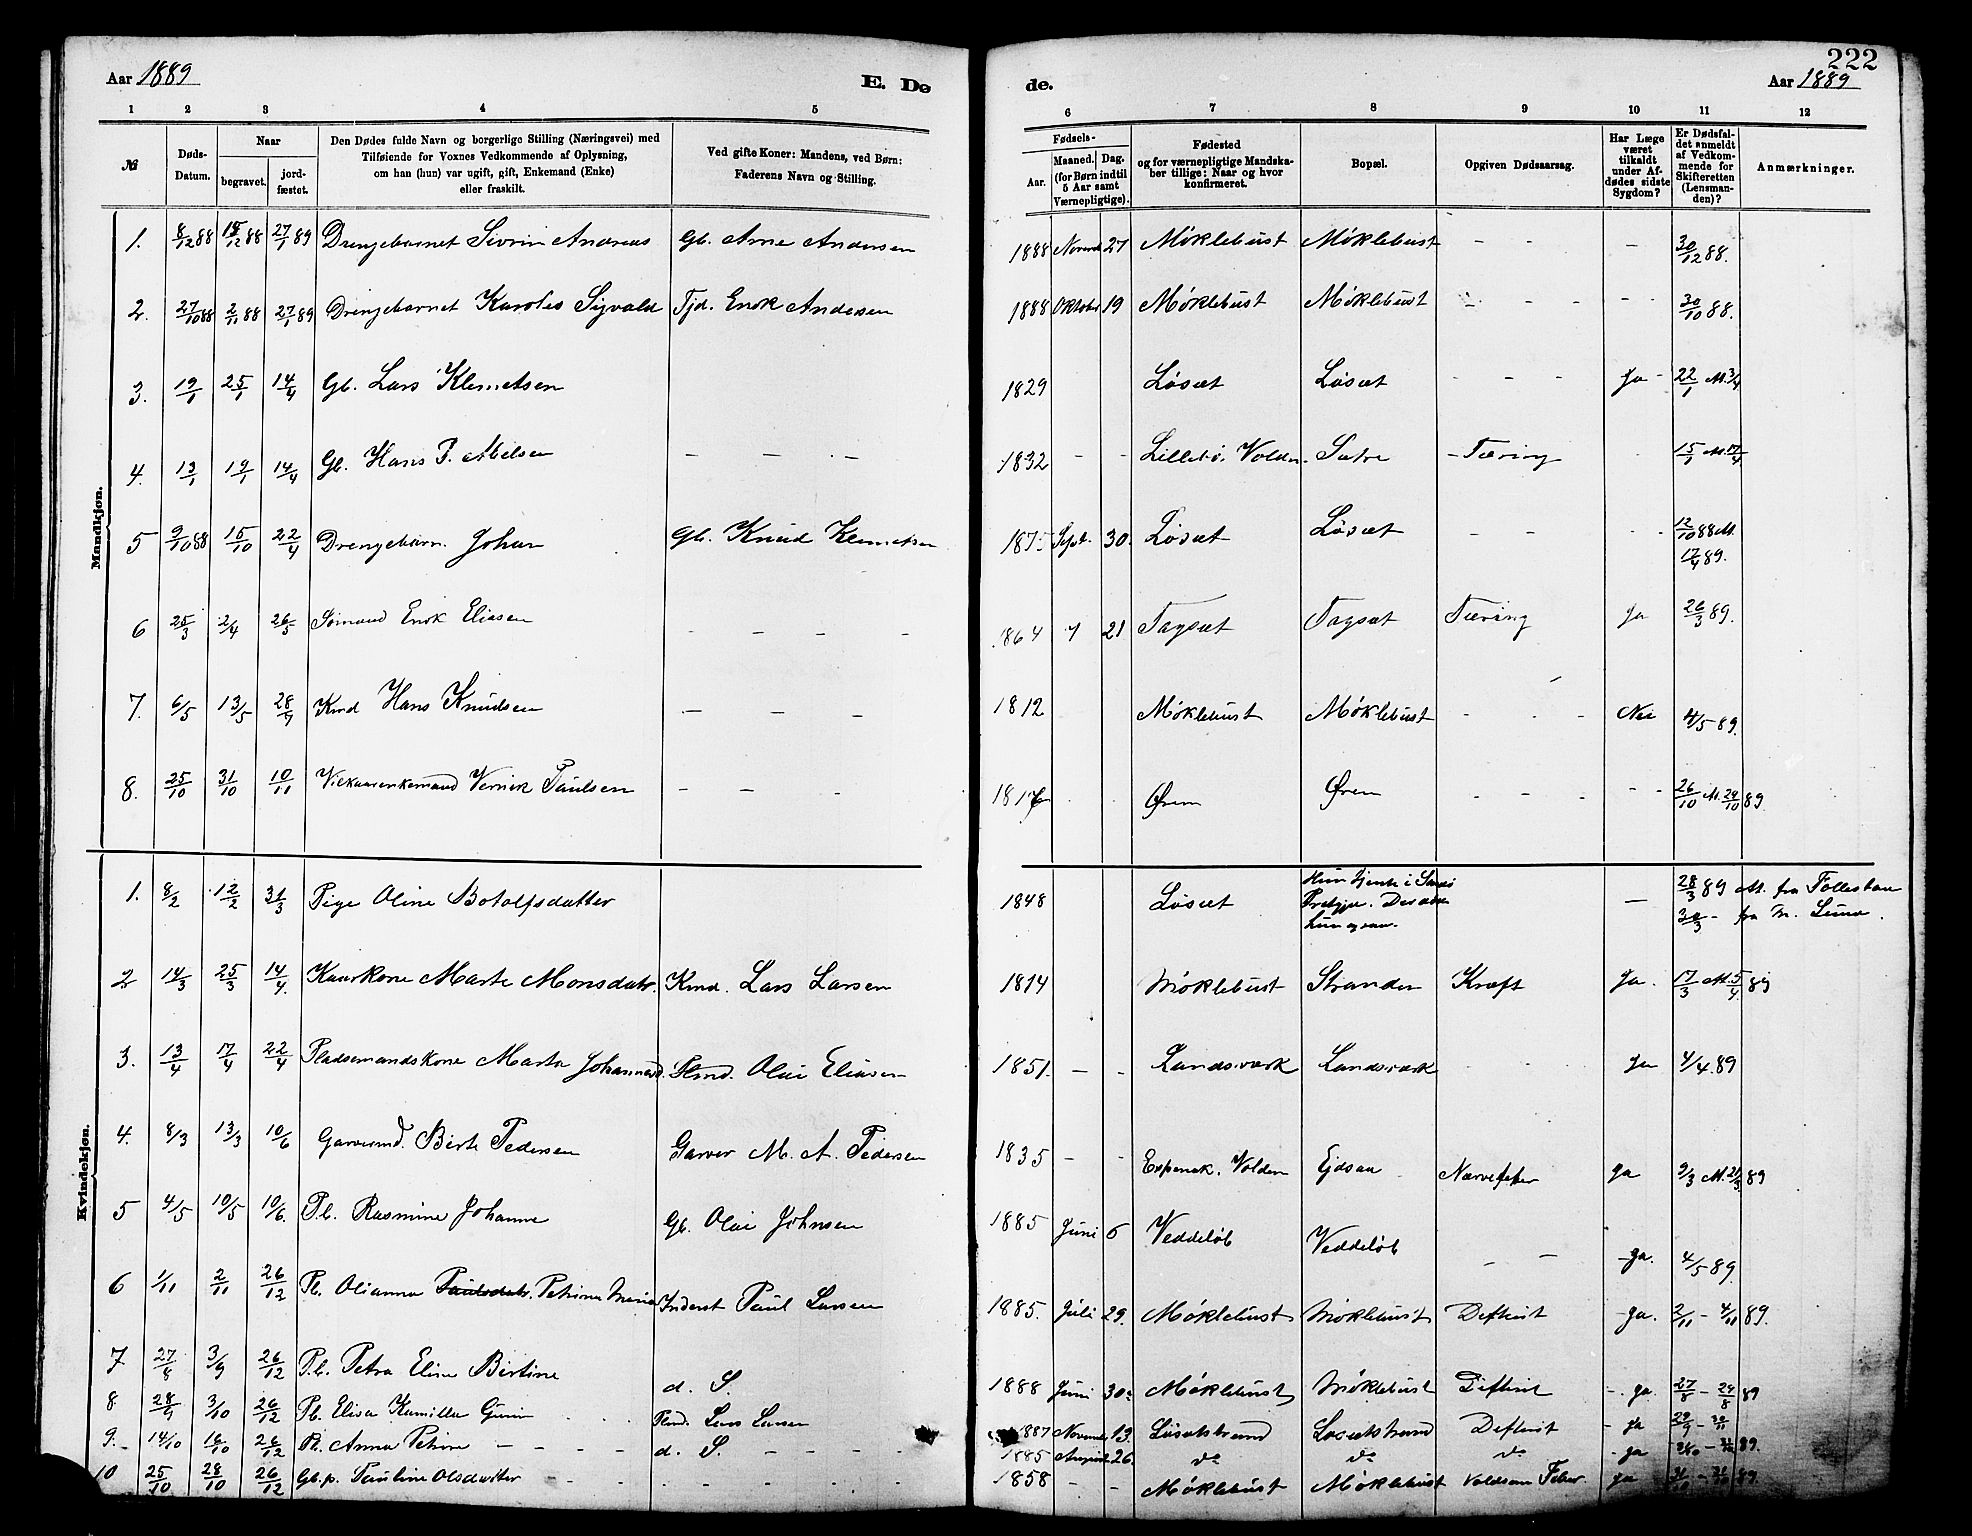 222
Aar 1889 E. De
de. Aar 1889
1 2 3 4 5
6 7 8 9 10 11 12
№ Døds-Datum. Naar begravet. jordfæstet. Den Dødes fulde Navn og borgerlige Stilling (Næringsvei) med Tilføiende for Voxnes Vedkommende af Oplysning, om han (hun) var ugift, gift, Enkemand (Enke) eller fraskilt. Ved gifte Koner: Mandens, ved Børn: Faderens Navn og Stilling.
Fødsels- Aar. Maaned. Dag. (for Børn indtil 5 Aar samt Værnepligtige). Fødested og for værnepligtige Mandskaber tillige: Naar og hvor konfirmeret. Bopæl. Opgiven Dødsaarsag. Har Læge været tilkaldt under Afdødes sidste Sygdom? Er Dødsfaldet anmeldt af Vedkommende for Skifteretten (Lensmanden)? Anmærkninger.
Mandkjøn.
1. 8/12 88 15/12 88 27/1 89 Drengebarnet Sivrin Andreas Gb. Arne Andersen 1888 Novemb 27 Møklebust Møklebust - - - 30/12 88.
2. 27/10 88 2/11 88 27/1 89 Drengebarnet Karolus Sigvald Tjd. Enok Andersen 1888 Oktober 19 Møklebust Møklebust - - - - - 30/10 88.
3. 19/1 25/1 14/4 Gb. Lars Klemetsen 1829 Løsæt Løsæt - - - Ja - 22/1 M. 3/4
4. 13/1 19/1 14/4 Gb. Hans P. Abelsen - - - 1832 - - Lillebø, Volden Sætre - Tæring 15/1 M. 17/4
5 9/10 88 15/10 22/4 Drengebarn. Johan Gb. Knud Klemetsen 1875 Sept. 30. Løsæt Løsæt - - - - 12/10 88 M. 17/4 89.
6 25/3 2/4 26/5 Sømand Enok Eliasen - - - - 1864 7 21 Tagsæt Tagsæt Tæring Ja 26/3 89.
7. 6/5 13/5 28/9 Kmd Hans Knudsen - - - 1812 Møklebust Møklebust - - - Nei 4/5 89.
8. 25/10 31/10 10/11 Vilkaarenkemand Vernik Paulsen - - - Ørem Ørem - - - - - 26/10 M. 29/10 89.
Kvindekjøn.
1. 8/2 12/2 31/3 Pige Oline Botolfsdatter 1848 Løsæt Hun tjente i - 28/3 89 M. fra
30/3 - fra
2 14/3 25/3 14/4. Kaarkone Marte Monsdatr. Kmd. Lars Larsen 1814 Møklebust Stranden Kræft Ja. 17/3 M. 5/4 89
3. 13/4 17/4 22/4 Pladsemandskone Marta Johannesd. Plmd. Olai Eliasen 1851. - - Landsværk Landsværk - - Ja 4/4. 89
4. 8/3 13/3 10/6 Garvermd. Birte Pedersen Garver M. A. Pedersen 1835 - - Espenak. Volden Ejdsaa Nærvefeber Ja 9/3 M. 21/3 89
5 4/5 10/5 10/6. Pb. Rasmine Johanne Gb. Olai Johnsen 1885 Juni 6 Veddeløb Veddeløb - - - Ja. 4/5 89.
6 1/11 2/11 26/12 Pb. Olianna Paulsdatr. Petrine Maria Inderst Paul Larsen 1885. Juli 29. Møklebust Møklebust Difterit - Ja. 2/11 - 4/11 89.
7 27/8 3/9 26/12 P.b. Petra Eline Bertine d. S. 1888 Juni 30. Møklebust Møklebust Difterit - Ja. 27/8 - 29/8 89
8 28/9 3/10 26/12 Pb. Elisa Kamilla Plmd. Lars Larsen 1887 Novemb 13. Løsætstrand Løsætstrand Difterit - Ja
9. - 14/10 16/10 26/12 Pb. Anna Petrine - - - - d. S. - - - - 1885 August 26 do do do - Ja 89.
10 25/10 28/10 26/12 Gb.p. Pauline Olsdatter - - - - - - - 1858 - - Møklebust Møklebust Ja 89.